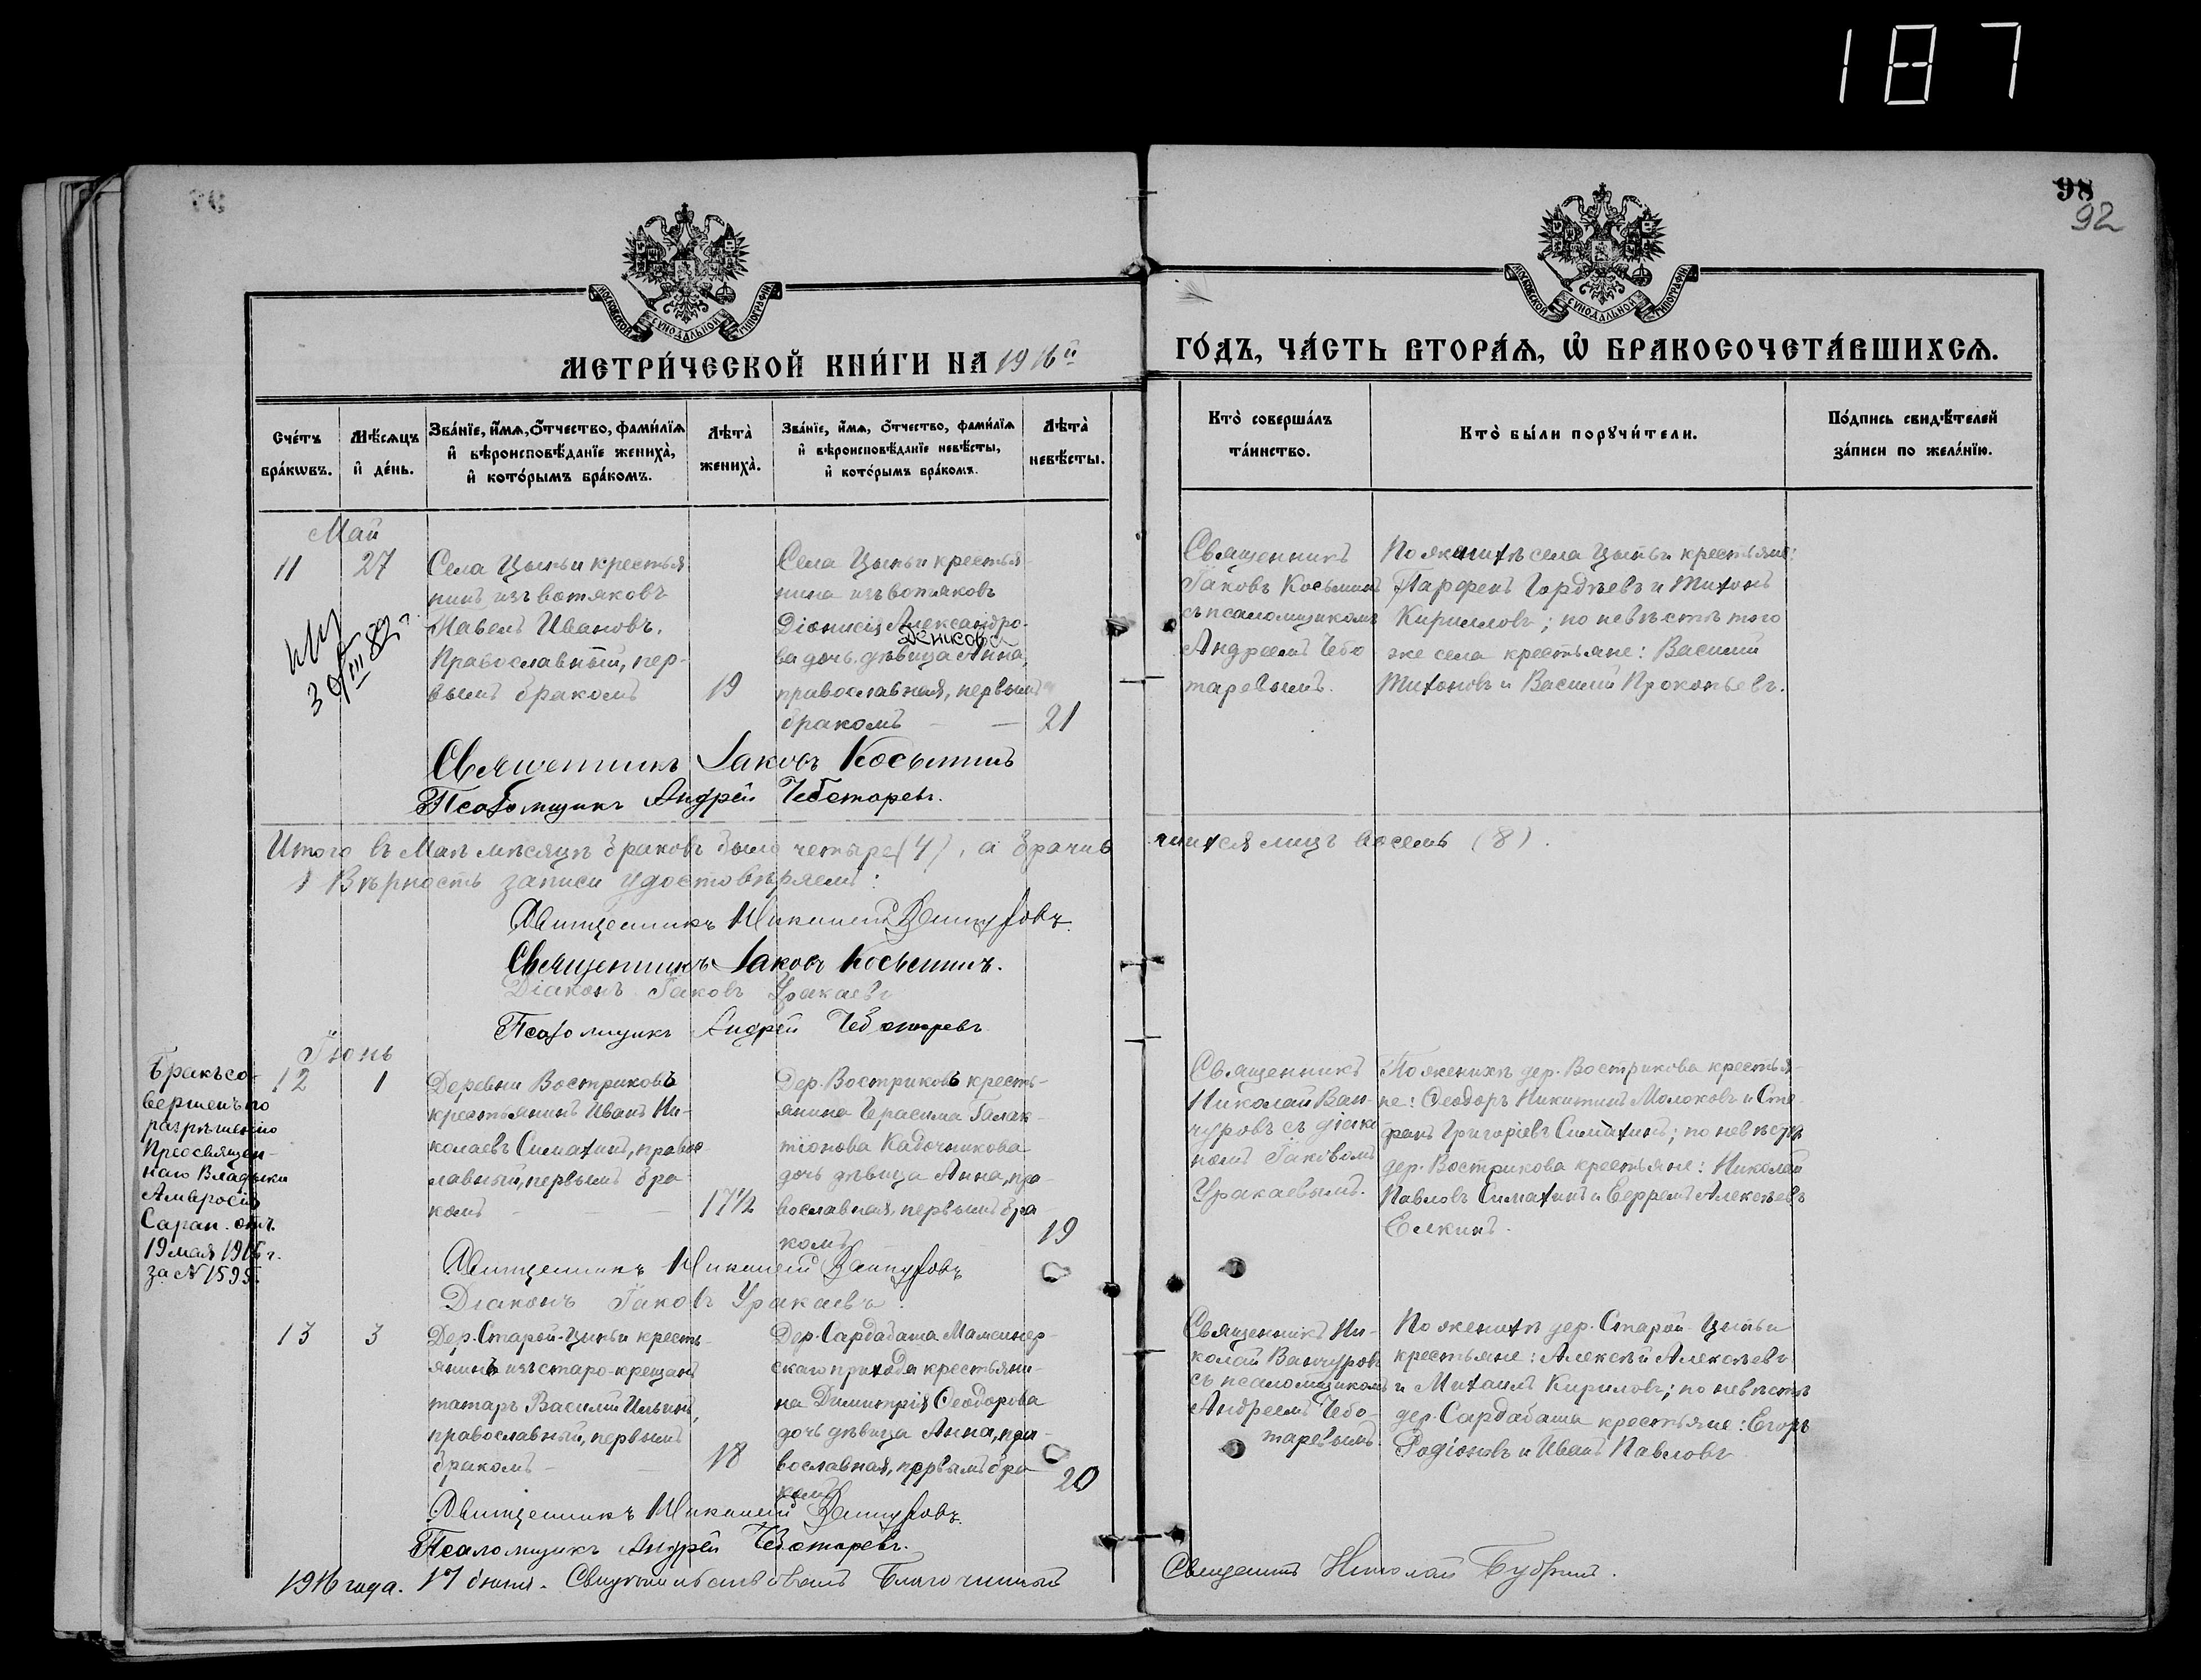 187
98
92
МОСКОВСКОЙ СѴНОДАЛЬНОЙ ТИПОГРАФІИ
МОСКОВСКОЙ СѴНОДАЛЬНОЙ ТИПОГРАФІИ
МЕТРИ́ЧЕСКОЙ КНИ́ГИ НА 1916й
ГО́ДЪ, ЧА́СТЬ ВТОРА́Ѧ, Ѡ҆ БРАКОСОЧЕТА́ВШИХСѦ.
Сче́тъ бра́кѡвъ.
Мѣ́сѧцъ и҆ де́нь.
Зва́нїе, и҆́мѧ, ѻ҆́тчество, фами́лїѧ и҆ вѣроисповѣ́данїе жениха̀, и҆ кото́рымъ бра́комъ.
Лѣ́та̀ жениха̀.
Зва́нїе, и҆́мѧ, ѻ҆́тчество, фами́лїѧ и҆ вѣроисповѣ́данїе невѣ́сты, и҆ кото́рымъ бра́комъ.
Лѣ́та̀ невѣ́сты.
Кто̀ соверша́лъ та́инство.
Кто̀ бы́ли порꙋчи́тели.
По́дпись свидѣ́телей за́писи по жела́нїю.
Май
11
27
Села Цыпьи крестья
нинъ изъ вотяковъ
Павелъ Ивановъ,
Православный, пер-
вымъ бракомъ
19
Села Цыпьи крестья
нина изъ вотяковъ
Діонисія Александро-
Денисова
ва дочь дѣвица Анна,
православная, первымъ
бракомъ
21
Священникъ
Іаковъ Косьминъ
съ псаломщикомъ
Андреемъ Чебо
таревымъ.
По женихѣ села Цыпьи крестьяне:
Парфенъ Гордѣевъ и Тихонъ
Кирилловъ; по невѣстѣ того
же села крестьяне: Василій
Тихоновъ и Василій Прокопьевъ.
Священникъ Іаковъ Косьминъ
Псаломщикъ Андрей Чеботаревъ.
Итого въ Маѣ мѣсяцѣ браковъ было четыре (4), а брачив
шихся лицъ восемь (8).
Вѣрность записи удостовѣряемъ:
Священникъ Николай Ванчуровъ.
Священникъ Іаковъ Косьминъ.
Діаконъ Іаковъ Уракаевъ
Псаломщикъ Андрей Чеботаревъ
Іюнь
Бракъ со-
вершенъ по
разрѣшенію
Преосвящен-
наго Владыки
Амвросія
Сарап. отъ
19 мая 1916 г.
за № 1595.
12
1
Деревни Востриковъ
крестьянинъ Иванъ Ни-
колаевъ Симахинъ, правос
лавный, первымъ бра
комъ
17½
Дер. Востриковъ кресть-
янина Герасима Галак-
тіонова Кадочникова
дочь дѣвица Анна, пра-
вославная, первымъ бра
комъ
19
Священникъ
Николай Ван-
чуровъ съ діако
номъ Іаковомъ
Уракаевымъ.
По женихѣ дер. Вострикова крестья-
не: Ѳеодоръ Никитинъ Молоковъ и Сте-
фанъ Григоріевъ Симахинъ; по невѣстѣ
дер. Вострикова крестьяне: Николай
Павловъ Симахинъ и Ефремъ Алексѣевъ
Елкинъ.
Священникъ Николай Ванчуровъ
Діаконъ Іаковъ Уракаевъ.
13
3
Дер. Старой-Цыпьи кресть-
янинъ изъ старо-крещенъ
татаръ Василій Ильинъ,
православный, первымъ
бракомъ
18
Дер. Сардабаша Мамсинер-
скаго прихода крестьяни-
на Димитрія Ѳеодорова
дочь дѣвица Анна, пра-
вославная, первымъ бра
комъ
20
Священникъ Ни-
колай Ванчуровъ
съ псаломщикомъ
Андреемъ Чебо-
таревымъ.
По женихѣ дер. Старой-Цыпьи
крестьяне: Алексѣй Алексѣевъ
и Михаилъ Кириловъ; по невѣстѣ
дер. Сардабаша крестьяне: Егоръ
Родіоновъ и Иванъ Павловъ
Священникъ Николай Ванчуровъ.
Псаломщикъ Андрей Чеботаревъ.
1916 года. 17 іюня. Свидѣтельствовалъ Благочинный
Священникъ Николай